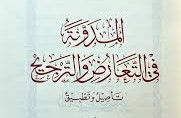 المدونة
في التعارض والترجيح
تأصيل وتطبيق